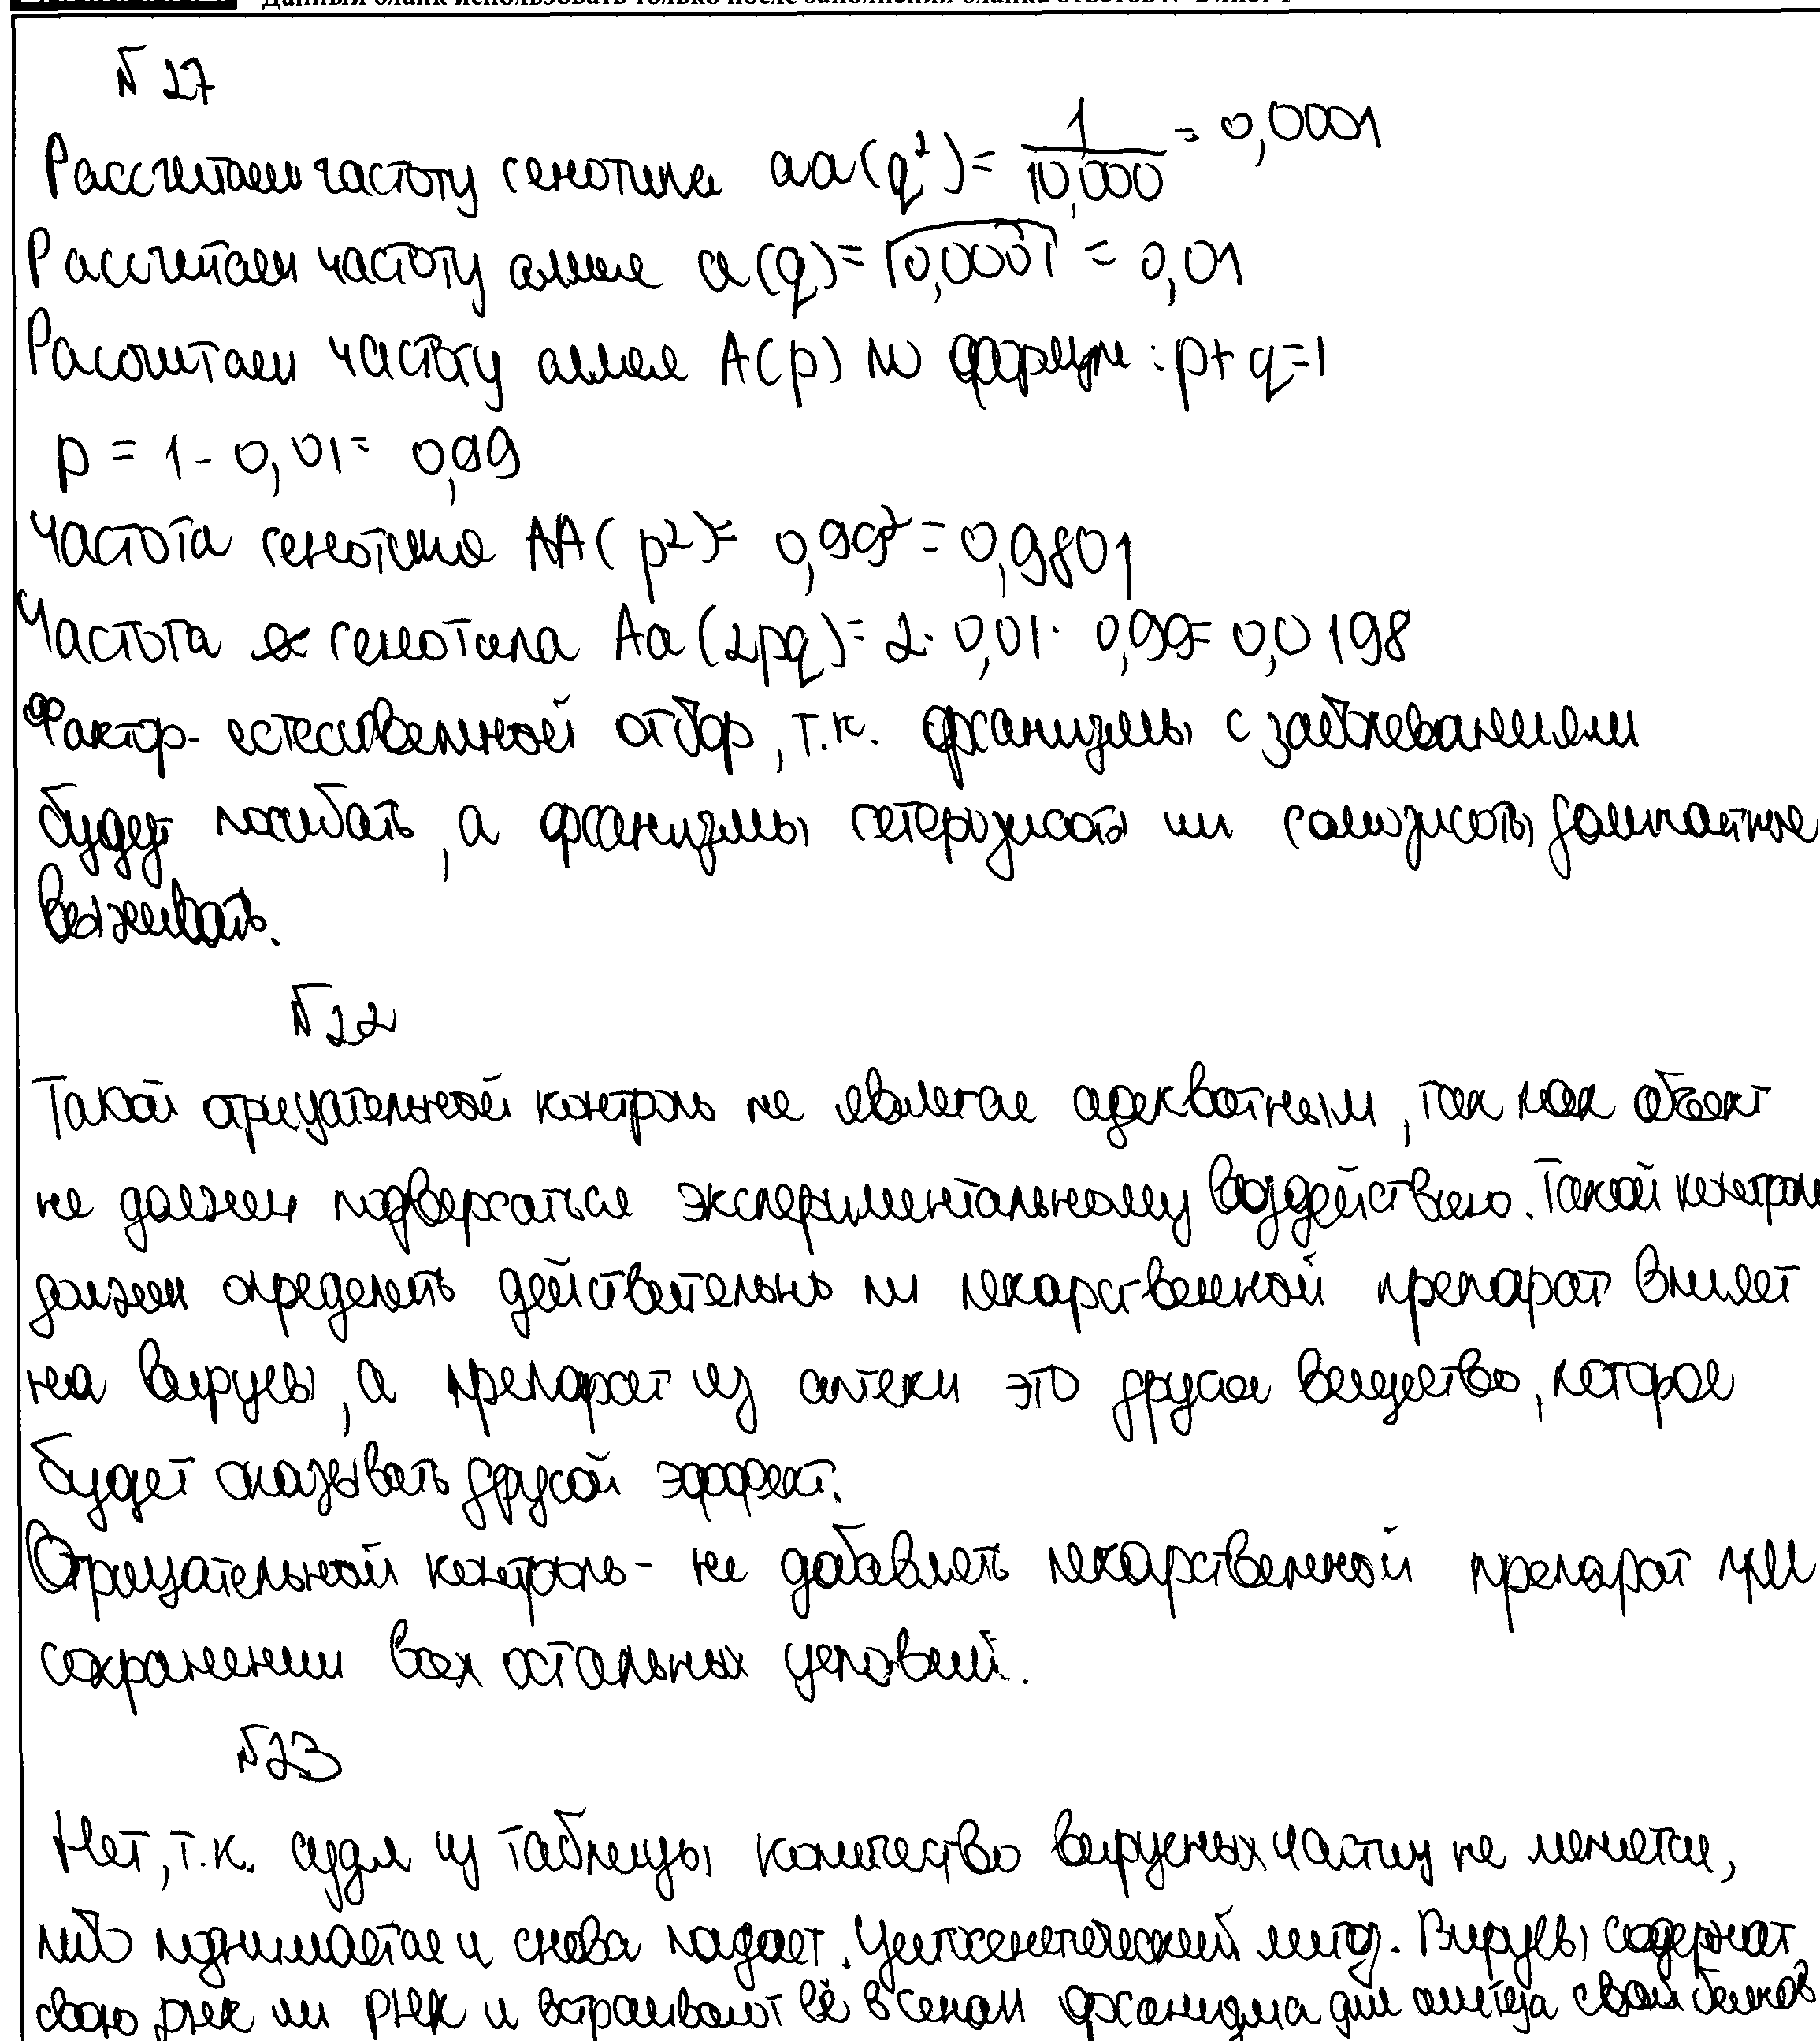 Данный бланк использовать только после заполнения бланка ответов № 2 лист 1
№ 27
Рассчитаем частоту генотипа aa (q²) = 1/10,000 = 0,0001
Рассчитаем частоту аллеля a (q) = √0,0001 = 0,01
Расситаем частоту аллеля A (p) по формуле: p + q = 1
p = 1 - 0,01 = 0,99
Частота генотипа AA (p²) = 0,99² = 0,9801
Частота генотипа Aa (2pq) = 2 · 0,01 · 0,99 = 0,0198
Фактор - естественный отбор, т.к. организмы с заболеваниями
будут погибать, а организмы гетерозиготы или гомозиготы доминатное
выживать.
№22
Такой отрицательный контроль не является адекватным, так как объект
не должен подвергаться экспериментальному воздействию. Такой контроль
должен определить действительно ли лекарственный препарат влияет
на вирусы, а препарат из аптеки это другое вещество, которое
будет оказывать другой эффект.
Отрицательный контроль - не добавлять лекарственный препарат при
сохранении всех остальных условий.
№23
Нет, т.к. судя из таблицы количество вирусных частиц не меняется,
либо поднимается и снова падает. Цитогенетический метод. Вирусы содержат
свою днк или РНК и встраивают её в геном организма для синтеза своих белков